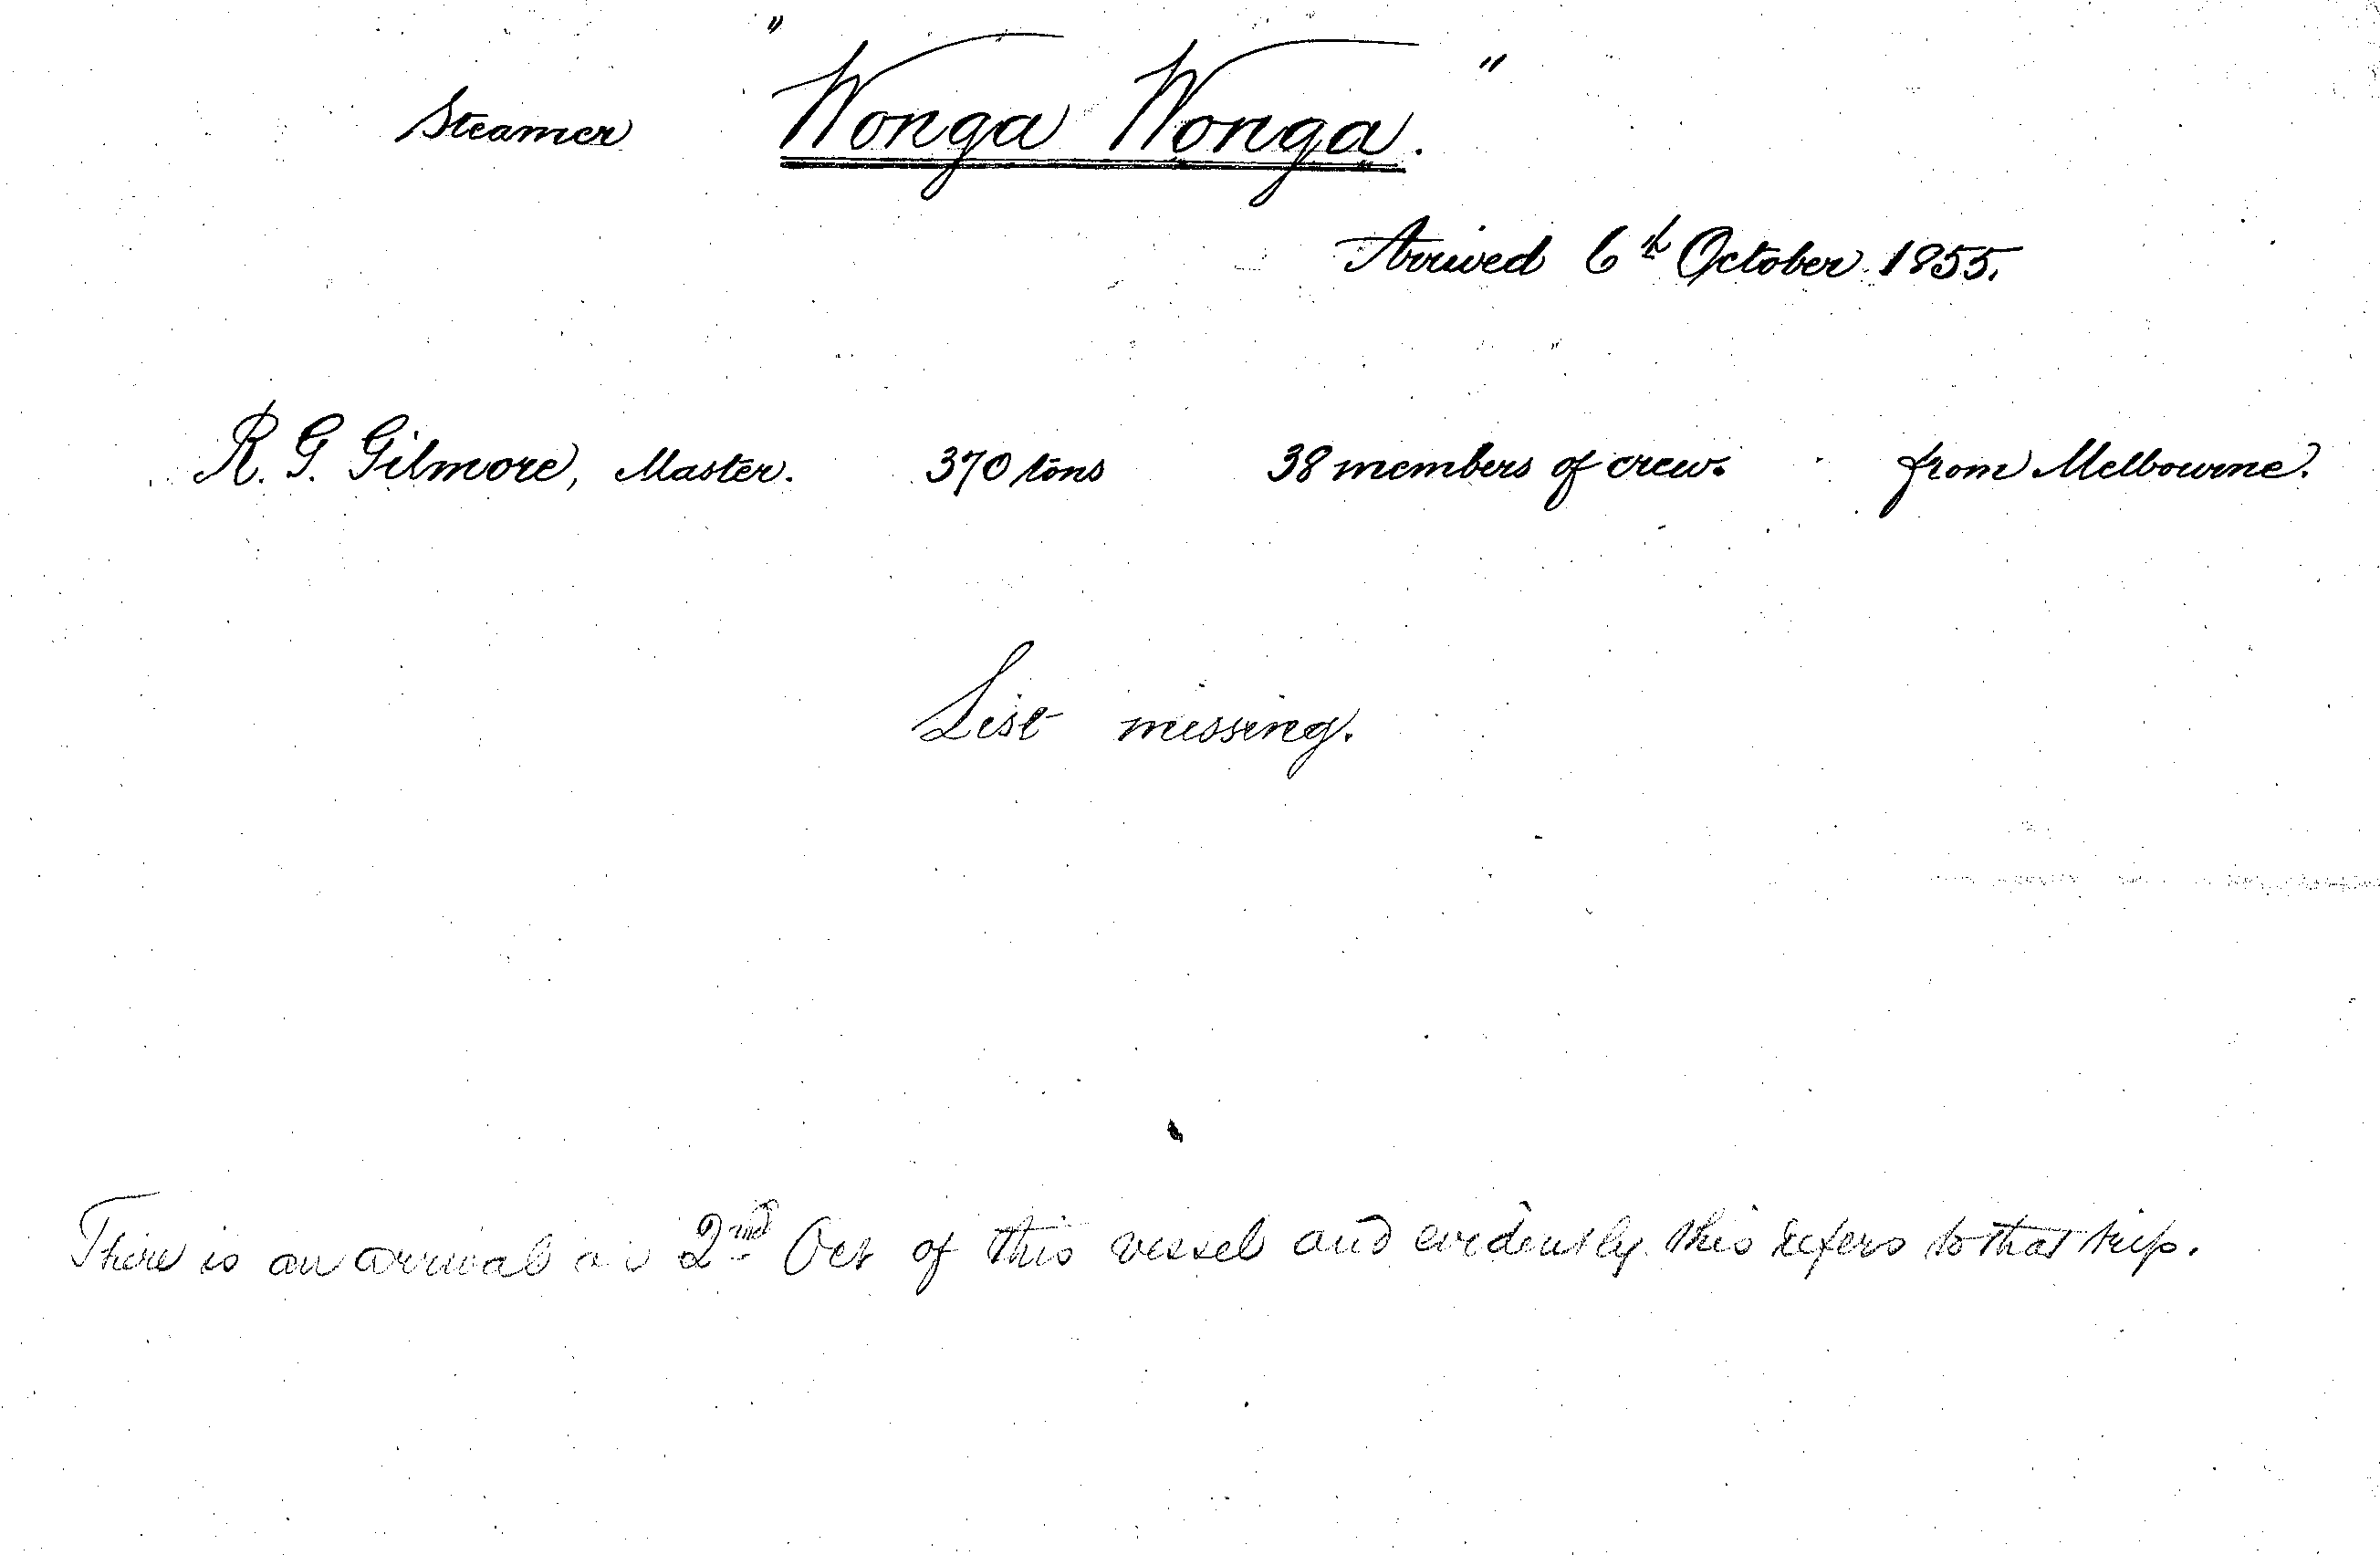 Steamer "Wonga Wonga."
Arrived 6th October 1855.
R. G. Gilmore, Master. 370 tons 38 members of crew. from Melbourne.
List missing.
There is an arrival on 2nd Oct of this vessel and evidently this refers to that trip.